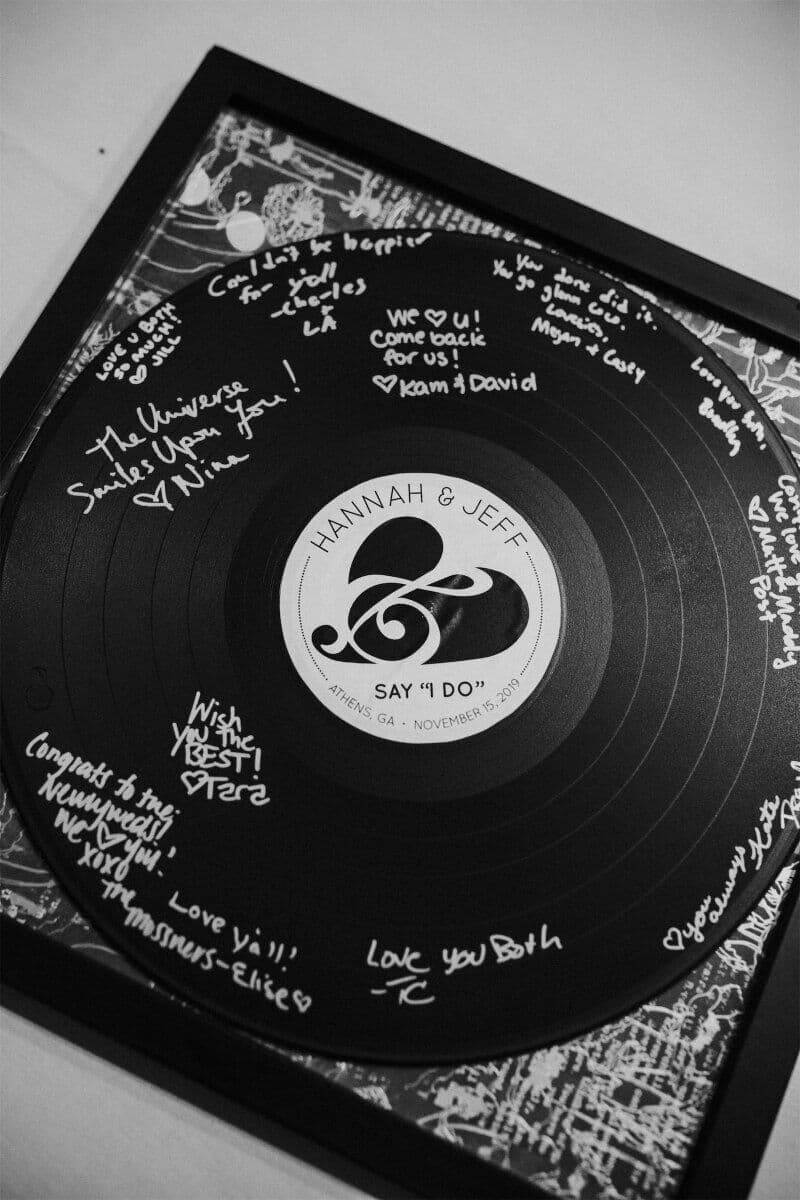 Couldn't be happier
for y'all
-Charles
LA
You done did it.
You go glenn coco.
Love,
Megan & Casey
We ♡ u!
Come back
for us!
♡ Kam & David
LOVE U BOTH
SO MUCH!
♡ JILL
Love you both,
Bradley
The Universe
Smiles Upon You!
♡ Nina
We love
♡ Matt & Mandy
Post
HANNAH & JEFF
&
SAY “I DO”
ATHENS, GA • NOVEMBER 15, 2019
Wish
you the
BEST!
♡ Tara
Congrats to the
Newlyweds!
We ♡ you!
XOXO
The
Mossners-Elise ♡
Love y'all!
Love you Both
-TC
♡ you
always
Kate